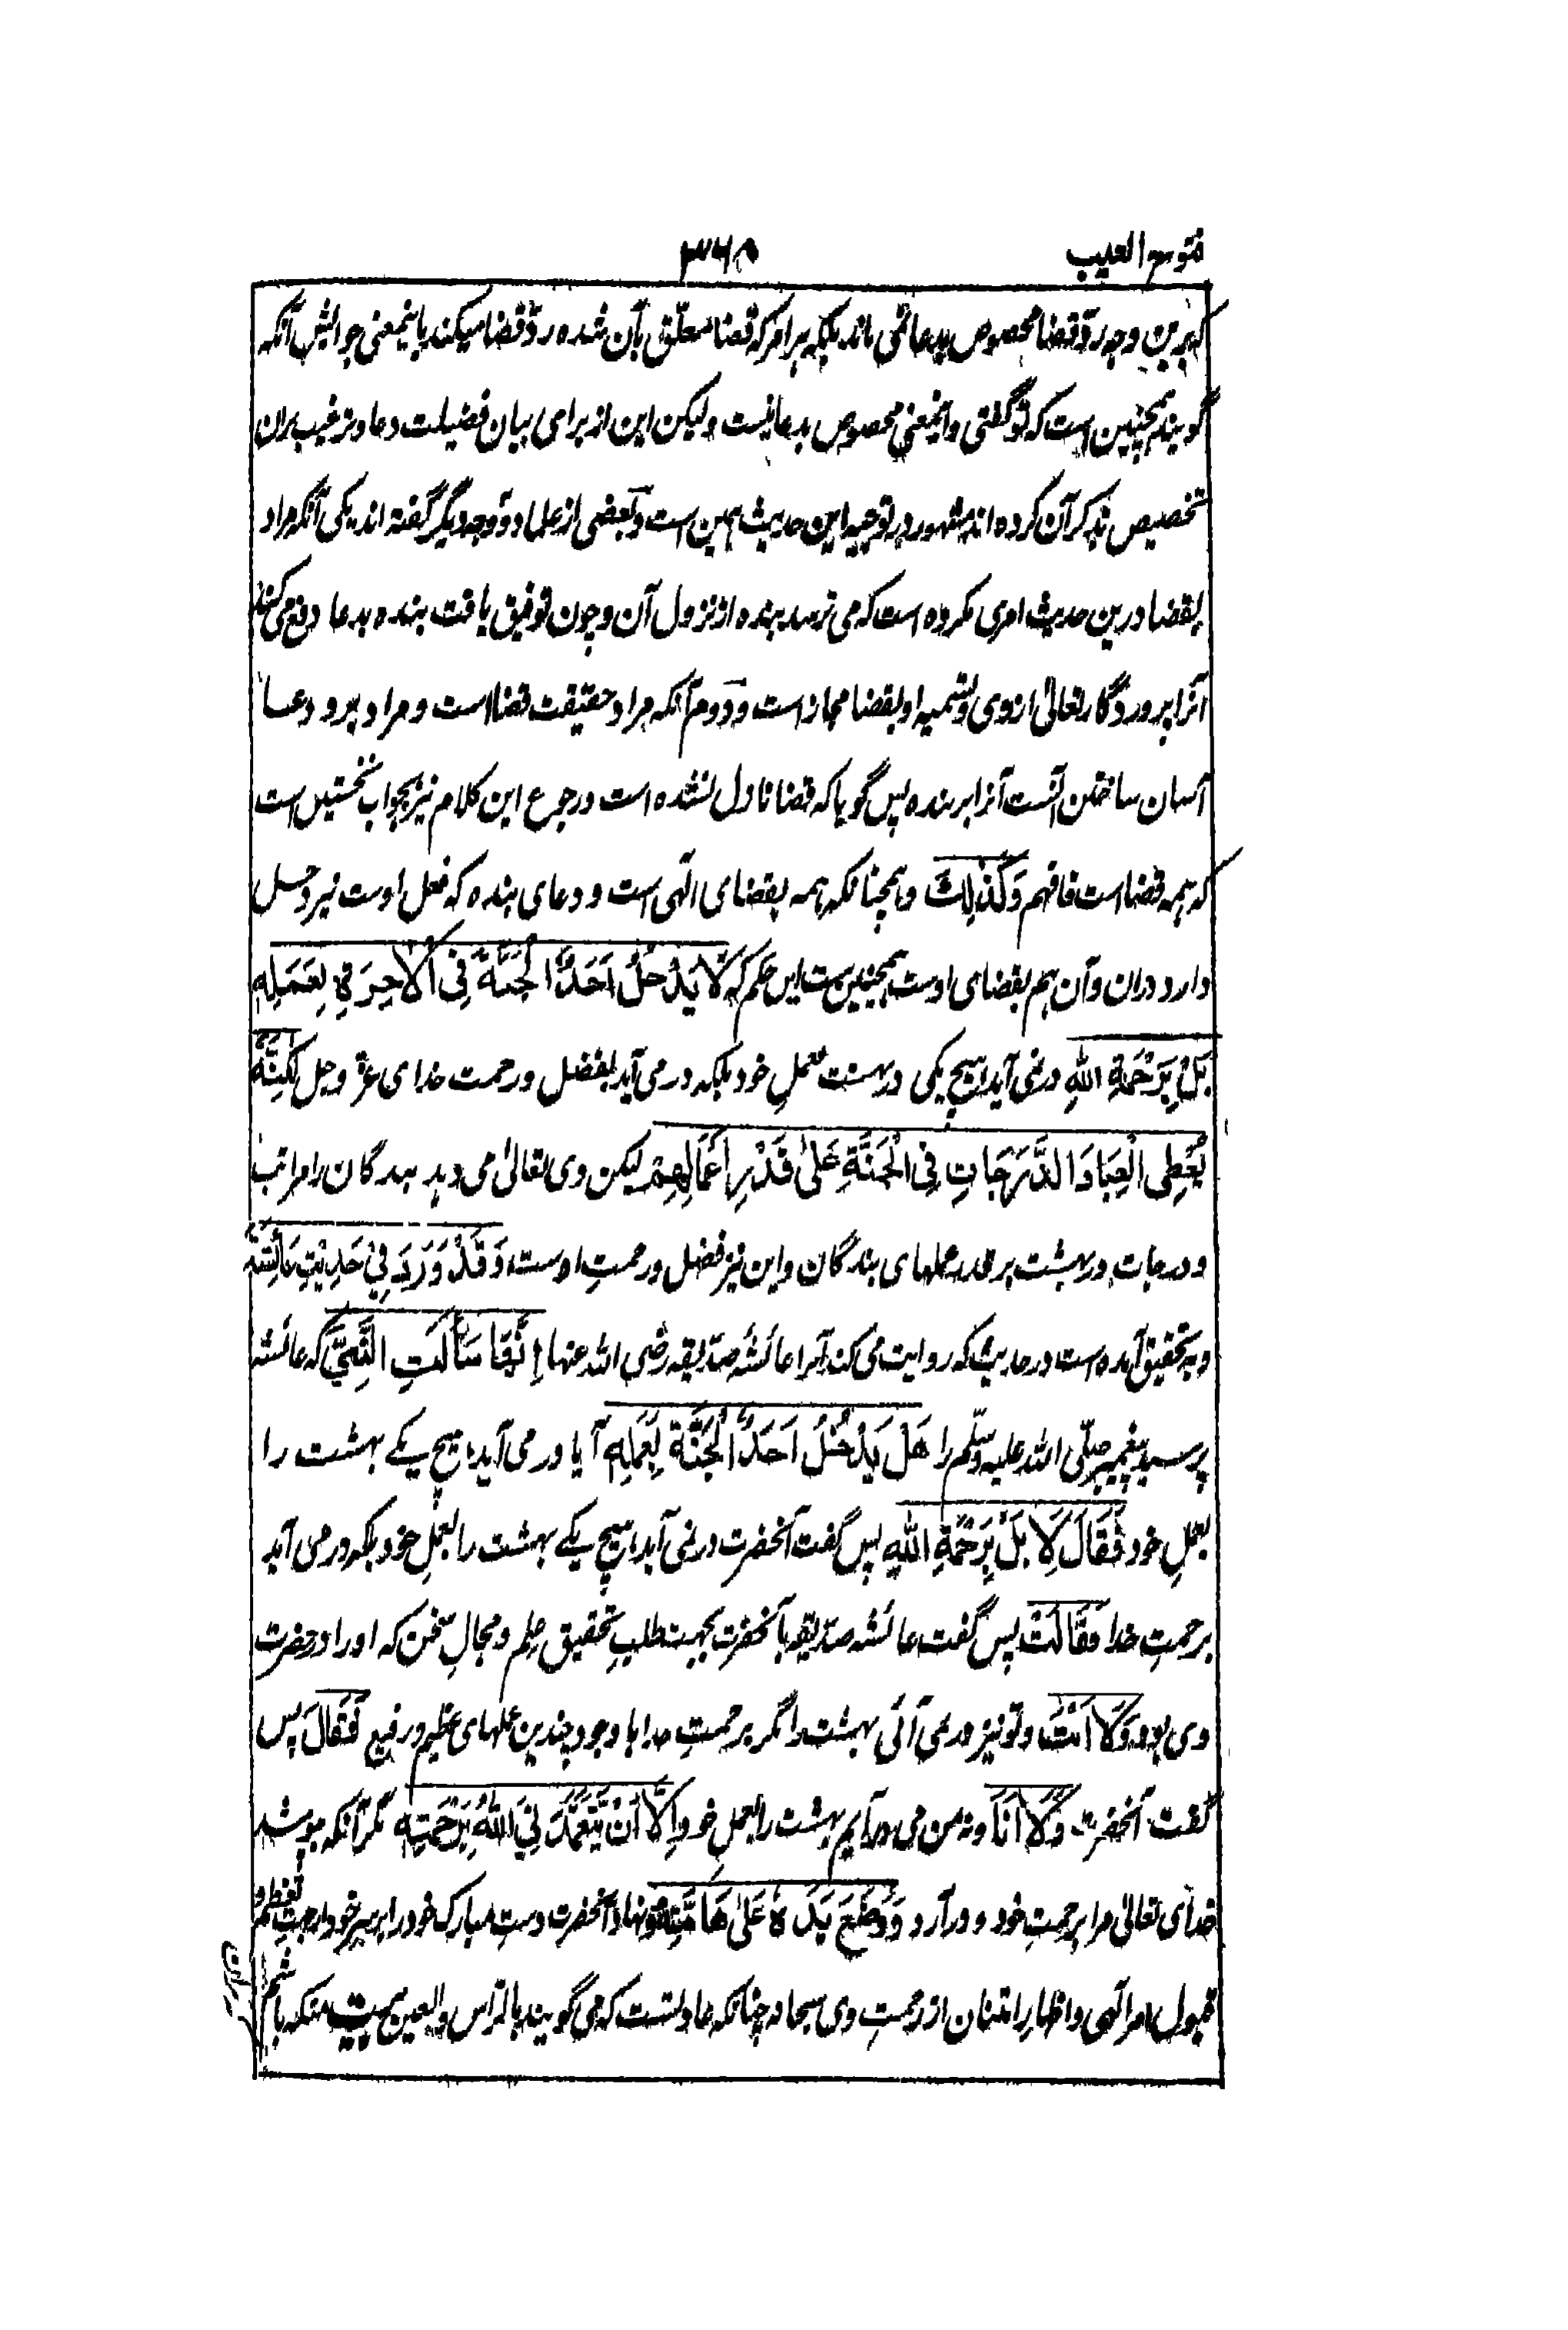 فتوح الغیب ۳۶۸
که برین وجه ردّ قضا مخصوص بدعا نمی ماند بلکه هر امر که قضا معلّق بآن شده ردّ قضا میکند باینمعنی جوابش آنکه
گویند همچنین است که تو گفتی و اینمعنی مخصوص بدعا نیست ولیکن این از برای بیان فضیلت دعا و ترغیب بران
تخصیص بذکر آن کرده اند مشهور در توجیه این حدیث همین است و بعضی از علما دو وجه دیگر گفته اند یکی آنکه مراد
بقضا درین حدیث امری مکروه است که می ترسد بنده از نزول آن و چون توفیق یافت بنده بدعا دفع می کند
آنرا پروردگار تعالیٰ از وی و تسمیه او بقضا مجاز است و دوم آنکه مراد حقیقت قضا است و مراد برد دعا
آسان ساختن آنست آنرا بر بنده پس گویا که قضا نازل نشده است و رجوع این کلام نیز بجواب نخستین است
که همه قضا است فافهم وَكَذٰلِكَ و همچنانکه همه بقضای الٰهی است و دعای بنده که فعل اوست نیز دخل
دارد دران و آن هم بقضای اوست همچنین ست این حکم که لَا يَدْخُلُ اَحَدٌ الْجَنَّةَ فِي الْاٰخِرَةِ بِعَمَلِهٖ
بَلْ بِرَحْمَةِ اللهِ در نمی آید هیچ یکی در بهشت بعملِ خود بلکه در می آید بفضل و رحمت خدای عزّ و جل لٰكِنَّهٗ
يُعْطِي الْعِبَادَ الدَّرَجَاتِ فِي الْجَنَّةِ عَلٰى قَدْرِ اَعْمَالِهِمْ لیکن وی تعالیٰ می دهد بندگان را مراتب
و درجات در بهشت بر قدر عملهای بندگان و این نیز فضل و رحمتِ اوست وَقَدْ وَرَدَ فِيْ حَدِيْثِ عَائِشَةَ
و به تحقیق آمده است در حدیث که روایت می کند آنرا عائشه صدّیقه رضی الله عنها اِنَّهَا سَأَلَتِ النَّبِيَّ که عائشه
پرسید پیغمبر صلّی الله علیه وسلّم را هَلْ يَدْخُلُ اَحَدٌ الْجَنَّةَ بِعَمَلِهٖ آیا در می آید هیچ یکے بهشت را
بعملِ خود فَقَالَ لَا بَلْ بِرَحْمَةِ اللهِ پس گفت آنحضرت در نمی آید هیچ یکے بهشت را بعملِ خود بلکه در می آید
برحمتِ خدا فَقَالَتْ پس گفت عائشه صدّیقه بآنحضرت بجهت طلبِ تحقیق علم و مجالِ سخن که او را در حضرت
وی بود وَلَا اَنْتَ و تو نیز در نمی آئی بهشت را مگر برحمتِ خدا با وجود چندین عملهای عظیم و رفیع فَقَالَ پس
گفت آنحضرت وَلَا اَنَا و نه من می درآیم بهشت را بعملِ خود اِلَّا اَنْ يَّتَغَمَّدَنِيَ اللهُ بِرَحْمَتِهٖ مگر آنکه بپوشد
خدای تعالیٰ مرا برحمتِ خود و درآرد وَوَضَعَ يَدَهٗ عَلٰى هَامَّتِهٖ و نهاد آنحضرت دستِ مبارک خود را بر سرِ خود از جهتِ تعظیم و
قبول امر الٰهی و اظهارِ امتنان از رحمتِ وی سبحانه چنانکه عادتست که می گویند بالرّاس والعین